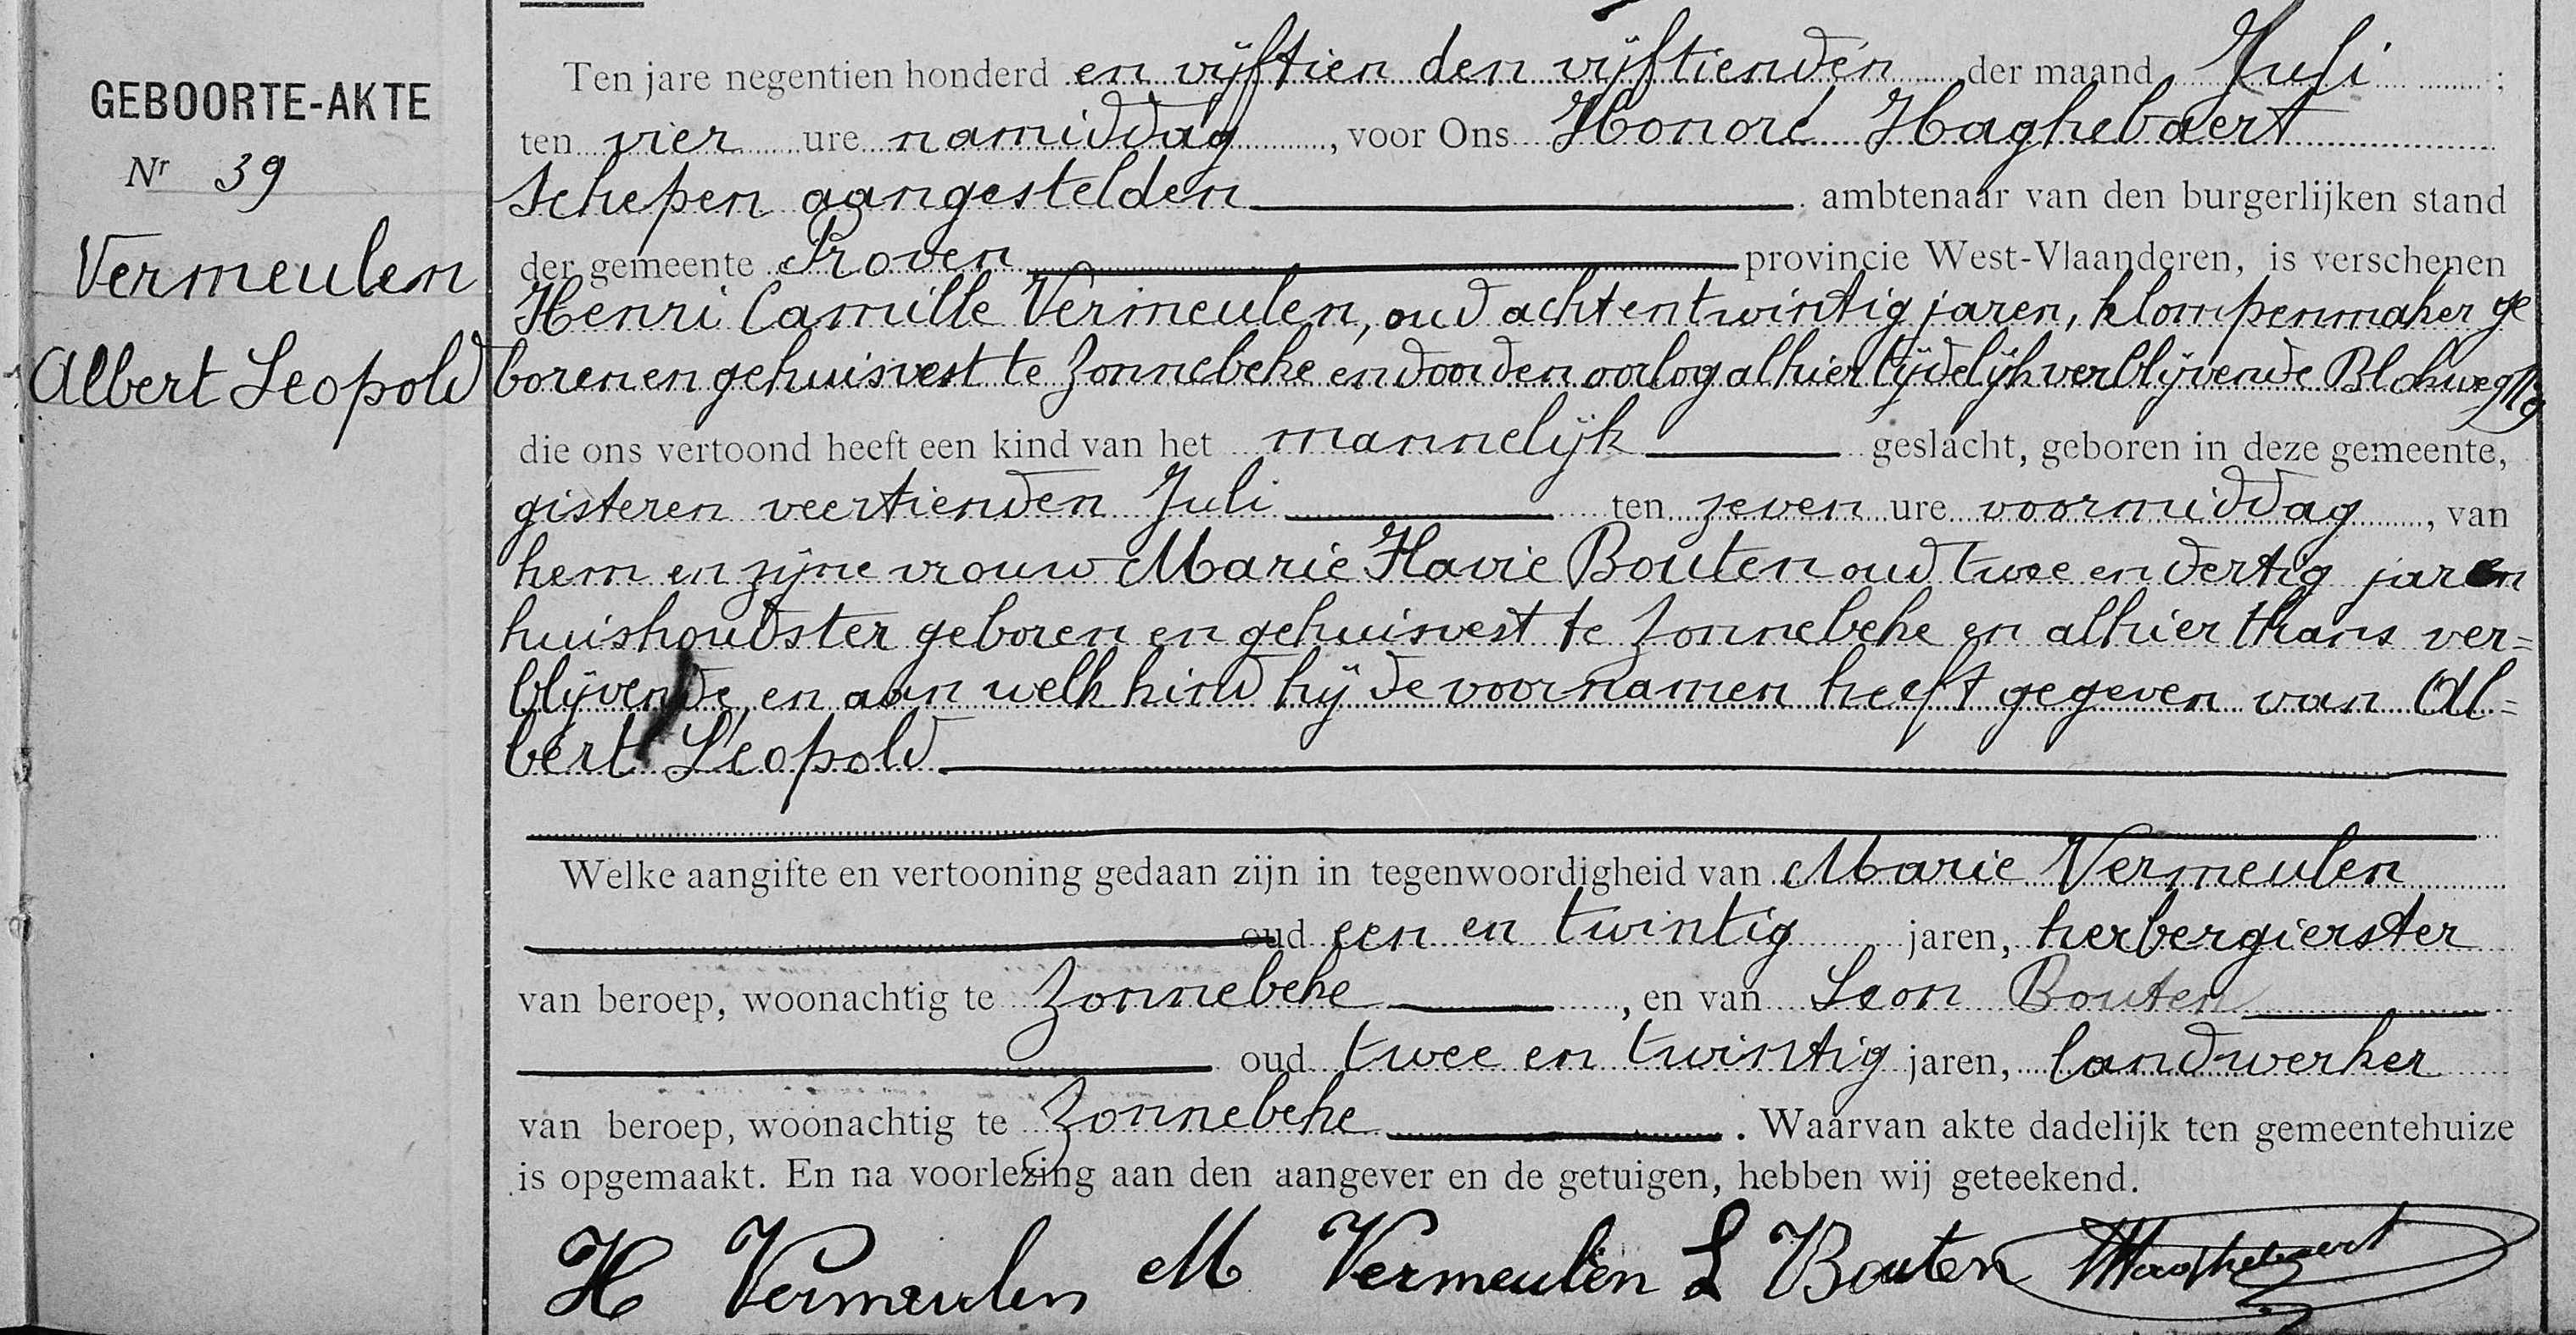 GEBOORTE-AKTE
Nr 39
Vermeulen
Albert Leopold
Ten jare negentien honderd en vijftien den vijftienden der maand Juli ;
ten vier ure namiddag, voor Ons Honoré Haghebaert
Schepen aangestelden ambtenaar van den burgerlijken stand
der gemeente Proven provincie West-Vlaanderen, is verschenen
Henri Camille Vermeulen, oud achtentwintig jaren, klompenmaker ge
boren en gehuisvest te Zonnebeke en door den oorlog alhier tijdelijk verblijvende Blokweg
die ons vertoond heeft een kind van het mannelijk geslacht, geboren in deze gemeente,
gisteren veertienden Juli ten zeven ure voormiddag, van
hem en zijne vrouw Marie Flavie Bouten oud twee en dertig jaren
huishoudster geboren en gehuisvest te Zonnebeke en alhier thans ver=
blijvende, en aan welk kind hij de voornamen heeft gegeven van Al=
bert Leopold
Welke aangifte en vertooning gedaan zijn in tegenwoordigheid van Marie Vermeulen
oud een en twintig jaren, herbergierster
van beroep, woonachtig te Zonnebeke, en van Leon Bouten
oud twee en twintig jaren, landwerker
van beroep, woonachtig te Zonnebeke. Waarvan akte dadelijk ten gemeentehuize
is opgemaakt. En na voorlezing aan den aangever en de getuigen, hebben wij geteekend.
H Vermeulen M Vermeulen L Bouten HHaghebaert